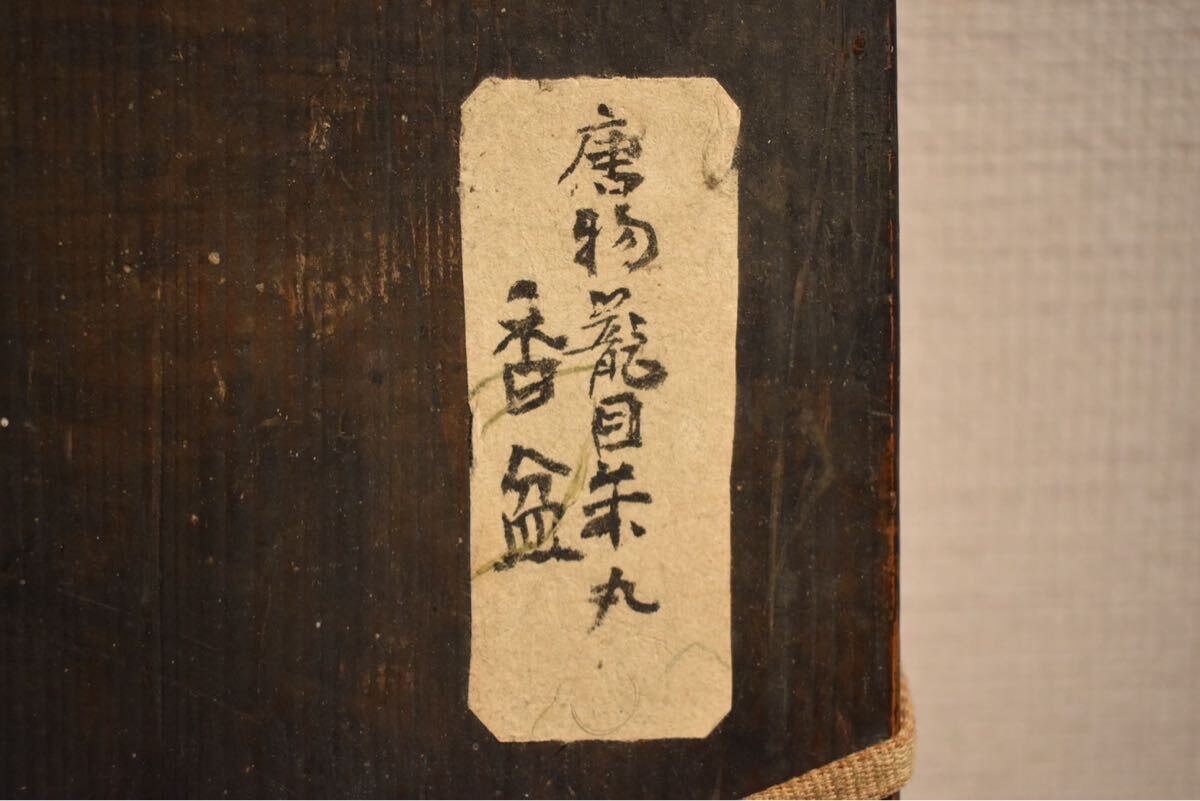 唐物籠目朱丸
香盆